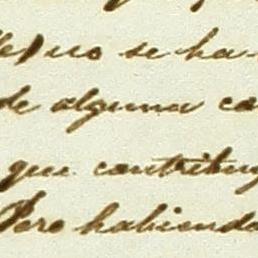 no se ha
de alguna co
que contribuy
Pero habiendo